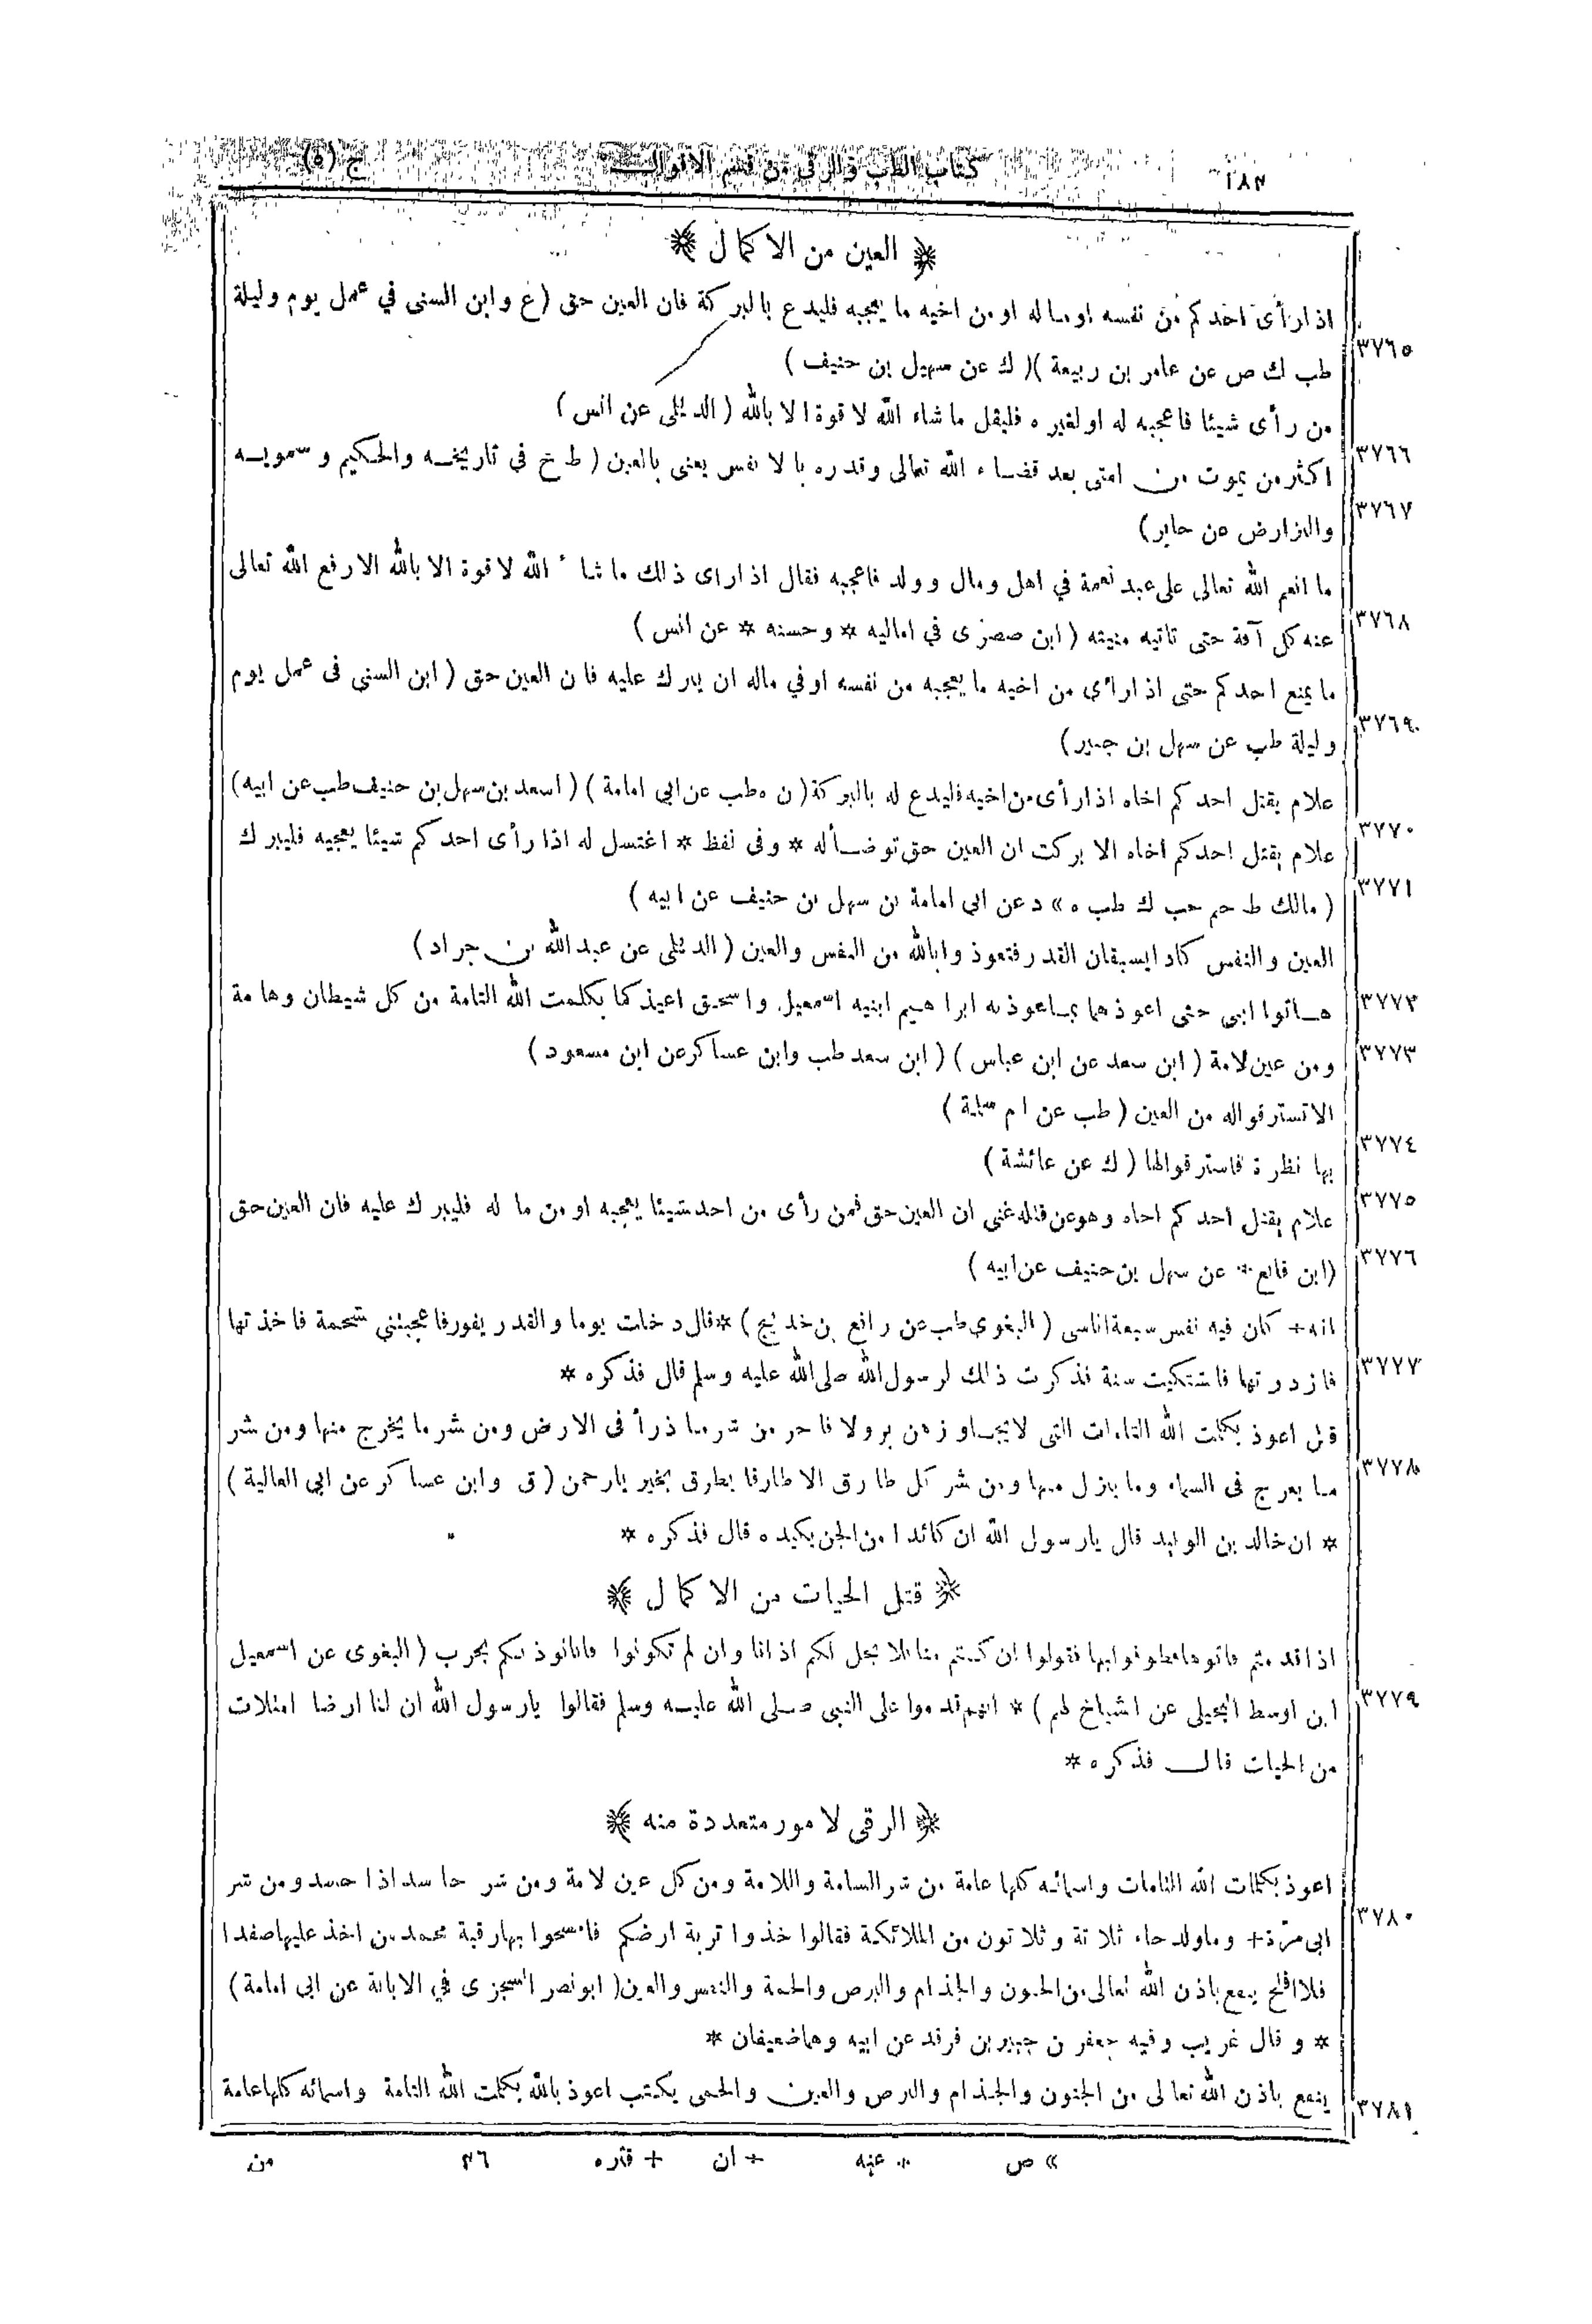 ١٨٢ كتاب الطب والرقى من قسم الاقوال ج (٥)
﴿ العين من الاكمال ﴾
اذا رأى احدكم من نفسه او ماله او من اخيه ما يعجبه فليدع بالبركة فان العين حق (ع وابن السنى في عمل يوم وليلة
٣٧٦٥
طب ك ص عن عامر بن ربيعة )( ك عن سهيل بن حنيف )
من رأى شيئا فاعجبه له او لغيره فليقل ما شاء الله لا قوة الا بالله ( الديلى عن انس )
٣٧٦٦
اكثر من يموت من امتى بعد قضاء الله تعالى وقدره بالانفس يعنى بالعين ( ط خ في تاريخه والحكيم وسمويه
٣٧٦٧
والبزار ض عن جابر)
ما انعم الله تعالى على عبد نعمة في اهل ومال وولد فاعجبه فقال اذا راى ذلك ما شاء الله لا قوة الا بالله الا رفع الله تعالى
٣٧٦٨
عنه كل آفة حتى تاتيه منيته ( ابن صصرى في اماليه * وحسنه * عن انس )
ما يمنع احدكم حتى اذا رأى من اخيه ما يعجبه من نفسه او في ماله ان يبارك عليه فان العين حق ( ابن السنى فى عمل يوم
٣٧٦٩
وليلة طب عن سهل بن جبير)
علام يقتل احدكم اخاه اذا رأى من اخيه فليدع له بالبركة ( ن ه طب عن ابى امامة ) ( اسعد بن سهل بن حنيف طب عن ابيه)
٣٧٧٠
علام يقتل احدكم اخاه الا بركت ان العين حق توضأ له * وفى لفظ * اغتسل له اذا رأى احدكم شيئا يعجبه فليبرك
٣٧٧١
( مالك ط حم حب ك طب ه » د عن ابى امامة بن سهل بن حنيف عن ابيه )
العين والنفس كادا يسبقان القدر فتعوذوا بالله من النفس والعين ( الديلى عن عبد الله بن جراد )
هاتوا ابنى حتى اعوذهما بما عوذ به ابراهيم ابنيه اسمعيل واسحق اعيذكما بكلمت الله التامة من كل شيطان وهامة
٣٧٧٢
ومن عين لامة ( ابن سعد عن ابن عباس ) ( ابن سعد طب وابن عساكر عن ابن مسعود )
٣٧٧٣
الا تسترقوا له من العين ( طب عن ام سلمة )
٣٧٧٤
بها نظرة فاسترقوا لها ( ك عن عائشة )
٣٧٧٥
علام يقتل احدكم اخاه وهو عن قتله غنى ان العين حق فمن رأى من احد شيئا يعجبه او من ماله فليبرك عليه فان العين حق
٣٧٧٦
(ابن قانع * عن سهل بن حنيف عن ابيه )
انه + كان فيه نفس سبعة اناسى ( البغوى طب عن رافع بن خديج ) * قال دخلت يوما والقدر يفور فاعجبتنى شحمة فاخذتها
٣٧٧٧
فازدوتها فاشتكيت سنة فذكرت ذلك لرسول الله صلى الله عليه وسلم قال فذكره *
قل اعوذ بكلمت الله التامات التى لا يجاوزهن بر ولا فاجر من شر ما ذرأ فى الارض ومن شر ما يخرج منها ومن شر
٣٧٧٨
ما يعرج فى السماء وما ينزل منها ومن شر كل طارق الا طارقا يطرق بخير يارحمن ( ق وابن عساكر عن ابى العالية )
* ان خالد بن الوليد قال يارسول الله ان كائدا من الجن يكيده قال فذكره *
﴿ قتل الحيات من الاكمال ﴾
اذا قدمتم فاتوها فطوفوا بها فقولوا ان كنتم منا فلا يحل لكم اذانا وان لم تكونوا فانا نوذنكم بحرب ( البغوى عن اسمعيل
٣٧٧٩
ابن اوسط البجيلى عن اشياخ لهم ) * انهم قدموا على النبى صلى الله عليه وسلم فقالوا يارسول الله ان لنا ارضا امتلات
من الحيات قال فذكره *
﴿ الرقى لامور متعددة منه ﴾
اعوذ بكلمات الله التامات واسمائه كلها عامة من شر السامة واللامة ومن كل عين لامة ومن شر حاسد اذا حسد ومن شر
٣٧٨٠
ابى مرة + وما ولد جاء ثلاثة وثلاثون من الملائكة فقالوا خذوا تربة ارضكم فامسحوا بها رقية محمد من اخذ عليها صفدا
فلا افلح ينفع باذن الله تعالى من الجنون والجذام والبرص والحمة والنفس والعين ( ابو نصر السجزى في الابانة عن ابى امامة )
* وقال غريب وفيه جعفر ن جبير بن فرقد عن ابيه وهما ضعيفان *
ينفع باذن الله تعالى من الجنون والجذام والبرص والعين والحمى يكتب اعوذ بالله بكلمت الله التامة واسمائه كلها عامة
٣٧٨١
» ص * عنه + ان + قتره ٤٦ من